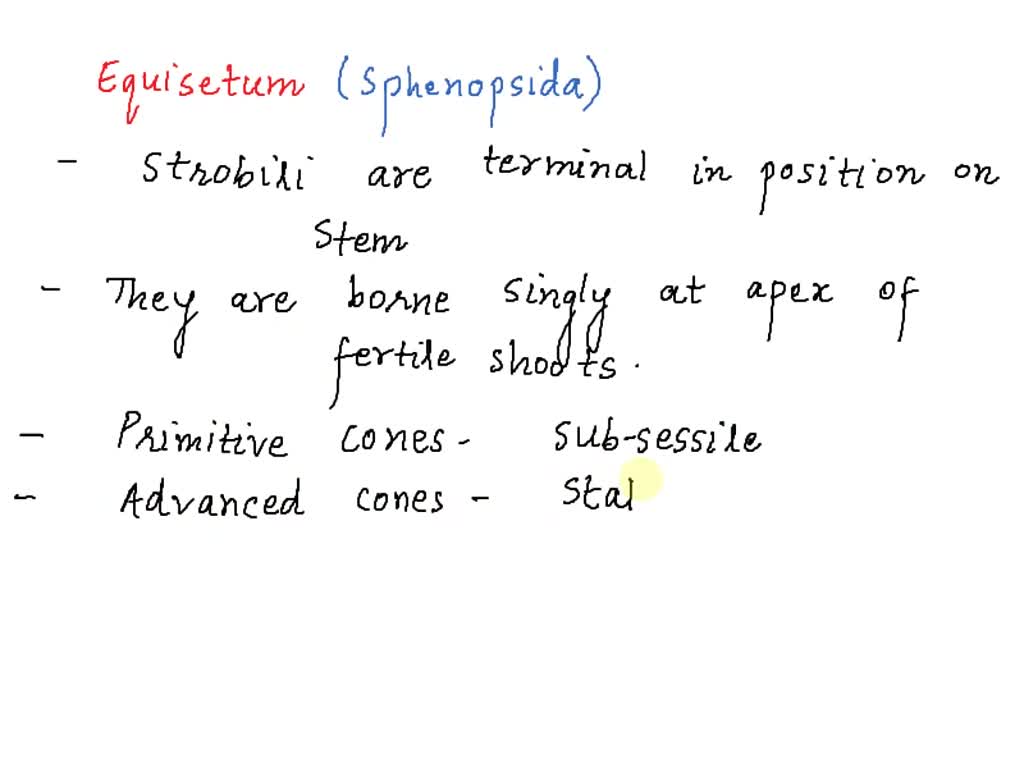 Equisetum (Sphenopsida)
- Strobili are terminal in position on
Stem
- They are borne singly at apex of
fertile shoots.
- Primitive cones - Sub-sessile
- Advanced cones - Stal